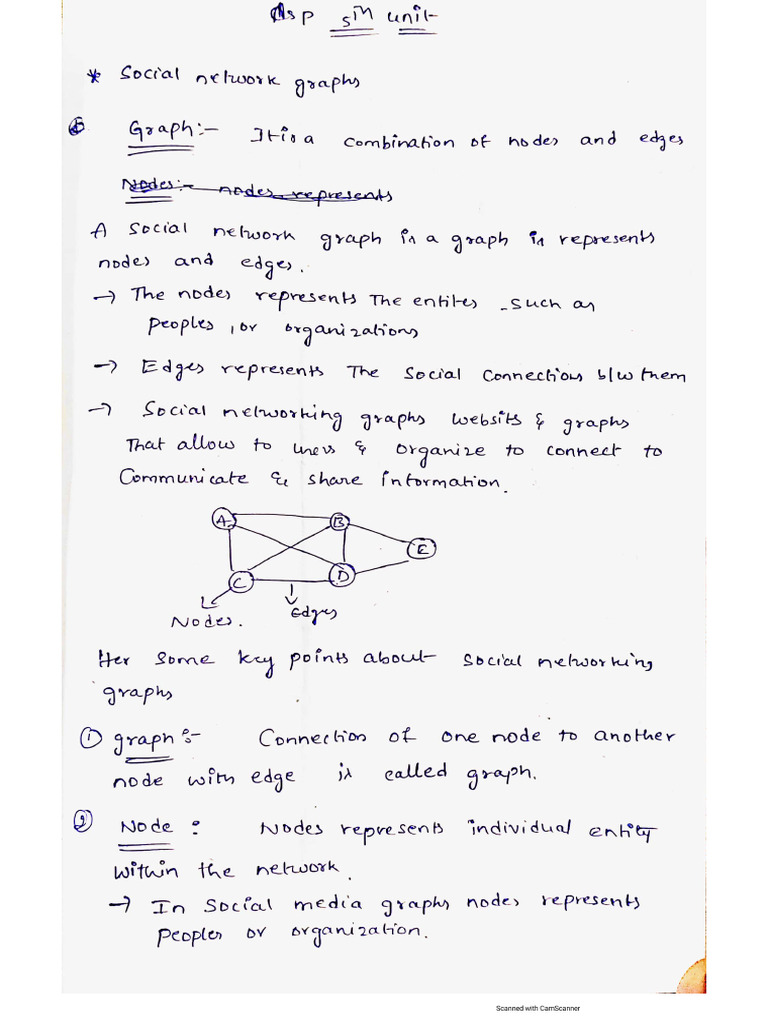 Dsp 5th unit
* Social network graphs
Graph:- It is a combination of nodes and edges
Nodes:- nodes represents
A Social network graph is a graph is represents
nodes and edges.
→ The nodes represents The entites such as
Peoples, or organizations
→ Edges represents The Social Connections b/w them
→ Social networking graphs websits & graphs
That allow to users & organize to connect to
Communicate & share information.
A B
E
C D
Nodes. Edges
Her some key points about social networking
graphs
① graph:- Connection of one node to another
node with edge is called graph.
② Node: Nodes represents individual entity
within the network.
→ In Social media graphs nodes represents
peoples or organization.
Scanned with CamScanner